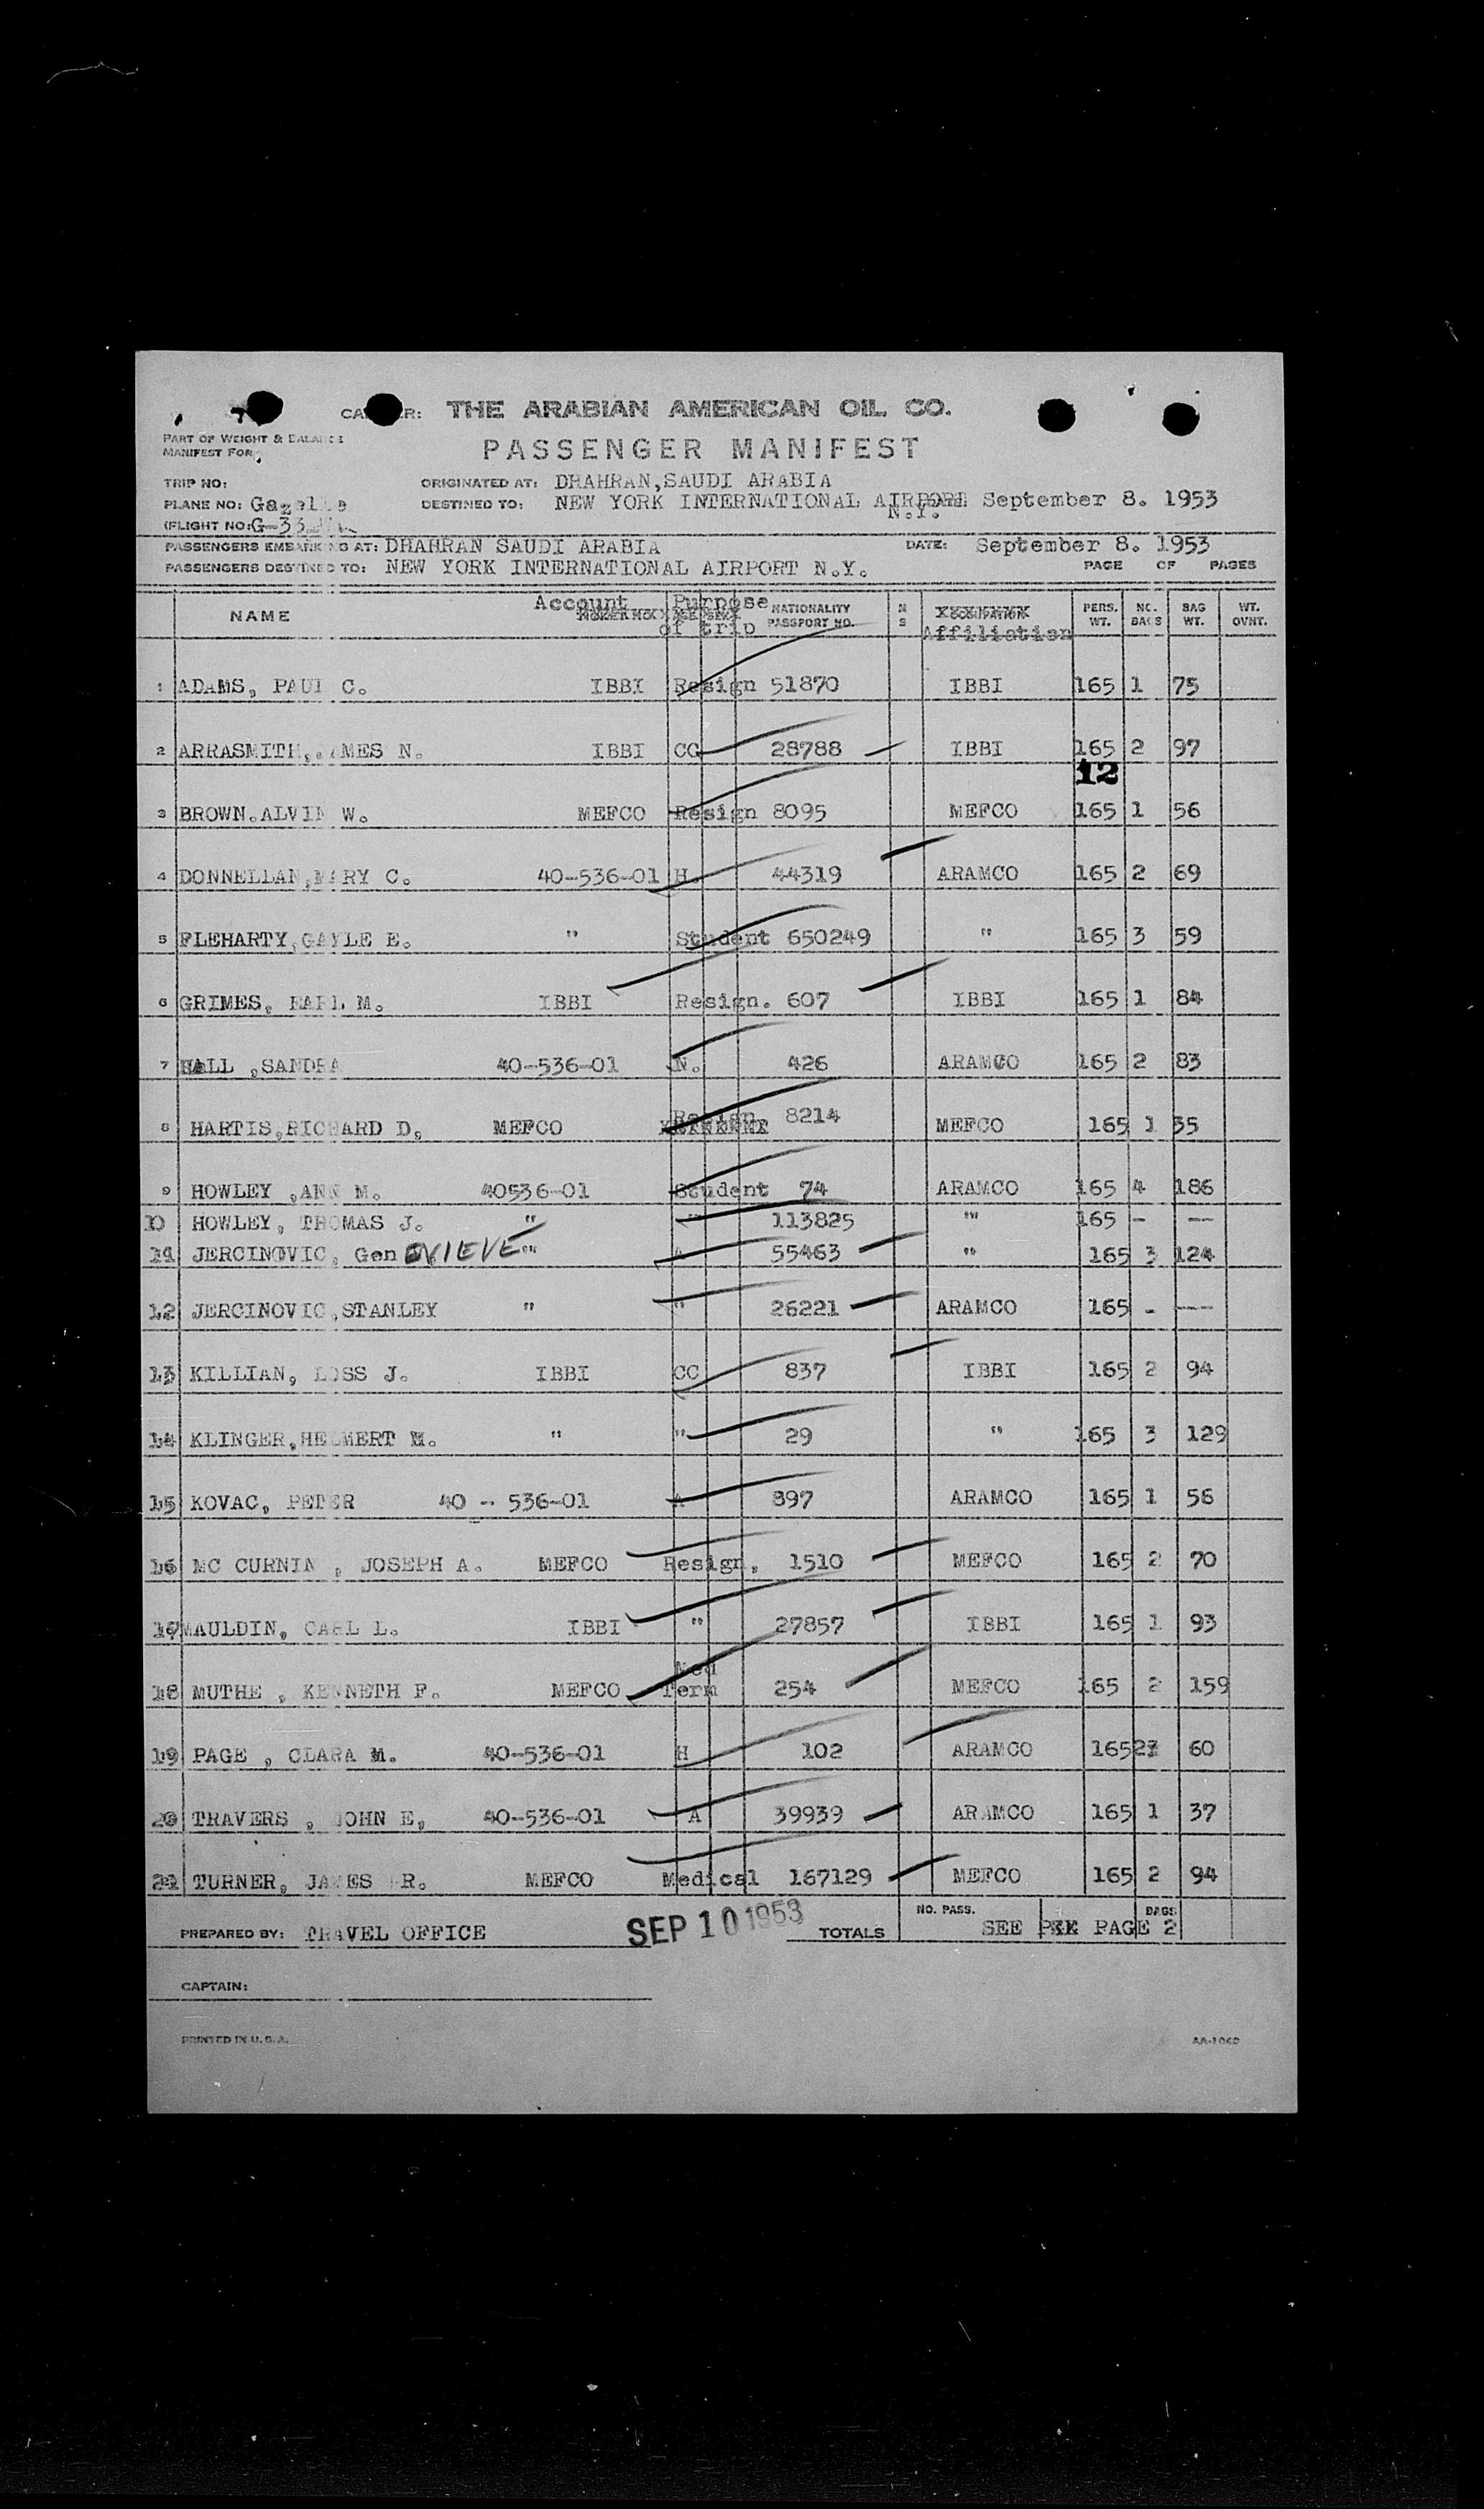 THE ARABIAN AMERICAN OIL CO.
PART OF WEIGHT & BALANCE
MANIFEST FOR
PASSENGER MANIFEST
TRIP NO:
ORIGINATED AT: DHAHRAN,SAUDI ARABIA
PLANE NO: Gazelle
DESTINED TO: NEW YORK INTERNATIONAL AIRPORT September 8. 1953
N.Y.
(FLIGHT NO: G-33
PASSENGERS EMBARKING AT: DHAHRAN SAUDI ARABIA DATE: September 8. 1953
PASSENGERS DESTINED TO: NEW YORK INTERNATIONAL AIRPORT N.Y. PAGE OF PAGES
NAME Account Purpose of trip NATIONALITY PASSPORT NO. N S Affiliation PERS. WT. NO. BAGS BAG WT. WT. OVNT.
1 ADAMS, PAUL C. IBBI Resign 51870 IBBI 165 1 75
2 ARRASMITH, JAMES N. IBBI CC 28788 IBBI 165 2 97
12
3 BROWN.ALVIN W. MEFCO Resign 8095 MEFCO 165 1 56
4 DONNELLAN,MARY C. 40-536-01 H. 44319 ARAMCO 165 2 69
5 FLEHARTY,GAYLE E. " Student 650249 " 165 3 59
6 GRIMES, EARL M. IBBI Resign. 607 IBBI 165 1 84
7 HALL ,SANDRA 40-536-01 N. 426 ARAMCO 165 2 83
8 HARTIS,RICHARD D, MEFCO Resign 8214 MEFCO 165 1 35
9 HOWLEY ,ANN M. 40536-01 Student 74 ARAMCO 165 4 186
10 HOWLEY, THOMAS J. " " 113825 " 165 - --
11 JERCINOVIC, GenEVIEVE " A 55463 " 165 3 124
12 JERCINOVIC,STANLEY " " 26221 ARAMCO 165 - ---
13 KILLIAN, LOSS J. IBBI CC 837 IBBI 165 2 94
14 KLINGER,HELMERT M. " " 29 " 165 3 129
15 KOVAC, PETER 40 - 536-01 A 897 ARAMCO 165 1 56
16 MC CURNIN , JOSEPH A. MEFCO Resign, 1510 MEFCO 165 2 70
17 MAULDIN, CARL L. IBBI " 27857 IBBI 165 1 93
18 MUTHE , KENNETH F. MEFCO Med Term 254 MEFCO 165 2 159
19 PAGE , CLARA M. 40-536-01 H 102 ARAMCO 165 2 60
20 TRAVERS , JOHN E, 40-536-01 A 39939 ARAMCO 165 1 37
21 TURNER, JAMES R. MEFCO Medical 167129 MEFCO 165 2 94
PREPARED BY: TRAVEL OFFICE SEP 10 1953 TOTALS NO. PASS. BAGS SEE PAGE 2
CAPTAIN:
PRINTED IN U.S.A.